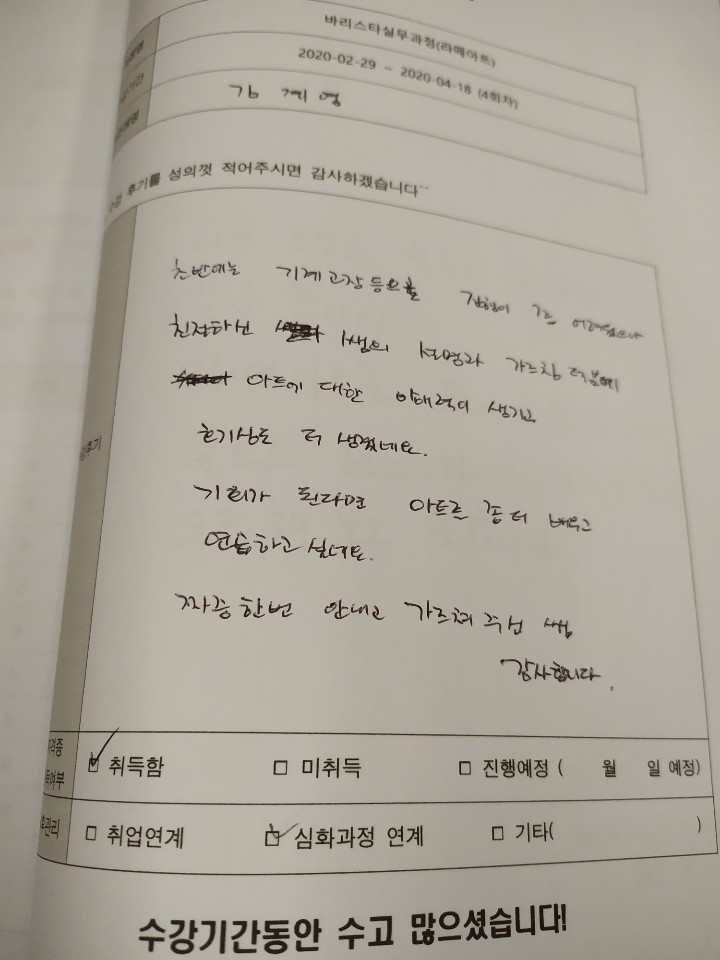 바리스타실무과정(라떼아트)
2020-02-29 ~ 2020-04-18 (4회차)
수강 후기를 성의껏 적어주시면 감사하겠습니다~~
초반에는 기계고장등으로 진행이 어려웠으나
친절하신 쌤의 설명과 가르침 덕분에
아트에 대한 이해력이 생기고
호기심도 더 생겼네요.
기회가 된다면 아트를 좀 더 배우고
연습하고 싶네요.
짜증한번 안내고 가르쳐 주신 쌤
감사합니다.
취득함 미취득 진행예정 ( 월 일 예정)
취업연계 심화과정 연계 기타( )
수강기간동안 수고 많으셨습니다!